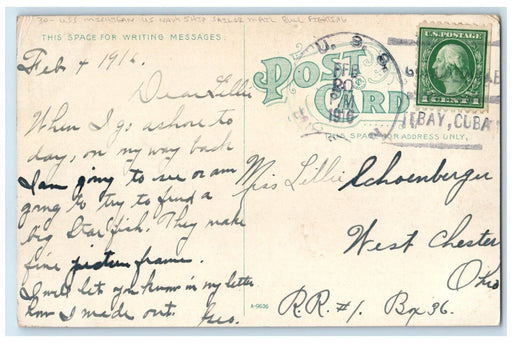 30- USS MICHIGAN US NAVY SHIP SAILOR MAIL BULL FIGHTING
THIS SPACE FOR WRITING MESSAGES.
POST CARD
THIS SPACE FOR ADDRESS ONLY.
U. S. S.
FEB
20
P M
1916
BAY, CUBA
U.S. POSTAGE
1 CENT 1
Feb 4 1916.
Dear Lillie
When I go ashore to
day, on my way back
I am going to see or am
going to try to find a
big Star fish. They make
fine picture frame.
I will let you know in my letter
how I made out. Geo.
Miss Lillie Schoenberger
West Chester
Ohio
R.R. #1. Box 36.
A-9636